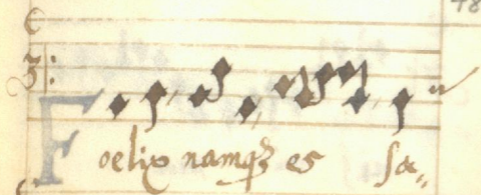 48
Foelix namqȝ es sa„